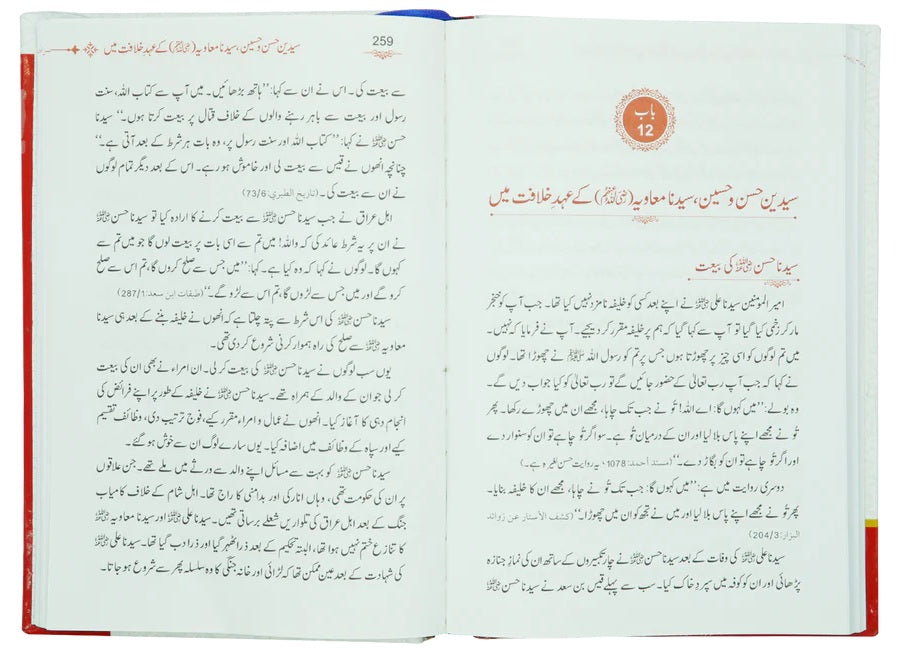 باب
12
سیدین حسن و حسین، سیدنا معاویہ (رضی اللہ عنہم) کے عہدِ خلافت میں
سیدنا حسن رضی اللہ عنہ کی بیعت
امیر المؤمنین سیدنا علی رضی اللہ عنہ نے اپنے بعد کسی کو خلیفہ نامزد نہیں کیا تھا۔ جب آپ کو خنجر
مار کر زخمی کیا گیا تو آپ سے کہا گیا کہ ہم پر خلیفہ مقرر کر دیجیے۔ آپ نے فرمایا کہ نہیں۔
میں تم لوگوں کو اسی چیز پر چھوڑتا ہوں جس پر تم کو رسول اللہ ﷺ نے چھوڑا تھا۔ لوگوں
نے کہا کہ جب آپ رب تعالیٰ کے حضور جائیں گے تو رب تعالیٰ کو کیا جواب دیں گے۔
وہ بولے: ’’میں کہوں گا: اے اللہ! تُو نے جب تک چاہا، مجھے ان میں چھوڑے رکھا۔ پھر
تُو نے مجھے اپنے پاس بلا لیا اور ان کے درمیان تُو ہے۔ سو اگر تُو چاہے تو ان کو سنوار دے
اور اگر تُو چاہے تو ان کو بگاڑ دے۔‘‘ (مسند أحمد: 1078، یہ روایت حسن لغیرہ ہے۔)
دوسری روایت میں ہے: ’’میں کہوں گا: جب تک تُو نے چاہا، مجھے ان کا خلیفہ بنایا۔
پھر تُو نے مجھے اپنے پاس بلا لیا اور میں نے تجھ کو ان میں چھوڑا۔‘‘ (کشف الأستار عن زوائد
البزار: 204/3)
سیدنا علی رضی اللہ عنہ کی وفات کے بعد سیدنا حسن رضی اللہ عنہ نے چار تکبیروں کے ساتھ ان کی نمازِ جنازہ
پڑھائی اور ان کو کوفہ میں سپردِ خاک کیا۔ سب سے پہلے قیس بن سعد نے سیدنا حسن رضی اللہ عنہ
سیدین حسن و حسین، سیدنا معاویہ (رضی اللہ عنہم) کے عہدِ خلافت میں
259
سے بیعت کی۔ اس نے ان سے کہا: ’’ہاتھ بڑھائیں۔ میں آپ سے کتاب اللہ، سنت
رسول اور بیعت سے باہر رہنے والوں کے خلاف قتال پر بیعت کرتا ہوں۔‘‘ سیدنا
حسن رضی اللہ عنہ نے کہا: ’’کتاب اللہ اور سنت رسول پر، وہ بات ہر شرط کے بعد آتی ہے۔‘‘
چنانچہ انھوں نے قیس سے بیعت لی اور خاموش ہو رہے۔ اس کے بعد دیگر تمام لوگوں
نے ان سے بیعت کی۔ (تاریخ الطبري: 73/6)
اہل عراق نے جب سیدنا حسن رضی اللہ عنہ سے بیعت کرنے کا ارادہ کیا تو سیدنا حسن رضی اللہ عنہ
نے ان پر یہ شرط عائد کی کہ واللہ! میں تم سے اسی بات پر بیعت لوں گا جو میں تم سے
کہوں گا۔ لوگوں نے کہا کہ وہ کیا ہے۔ کہا: ’’میں جس سے صلح کروں گا، تم اس سے صلح
کرو گے اور میں جس سے لڑوں گا، تم اس سے لڑو گے۔‘‘ (طبقات ابن سعد: 287/1)
سیدنا حسن رضی اللہ عنہ کی اس شرط سے پتہ چلتا ہے کہ انھوں نے خلیفہ بننے کے بعد ہی سیدنا
معاویہ رضی اللہ عنہ سے صلح کی راہ ہموار کرنی شروع کر دی تھی۔
یوں سب لوگوں نے سیدنا حسن رضی اللہ عنہ کی بیعت کر لی۔ ان امراء نے بھی ان کی بیعت
کر لی جو ان کے والد کے ہمراہ تھے۔ سیدنا حسن رضی اللہ عنہ نے خلیفہ کے طور پر اپنے فرائض کی
انجام دہی کا آغاز کیا۔ انھوں نے عمال و امراء مقرر کیے، فوج ترتیب دی، وظائف تقسیم
کیے اور سپاہ کے وظائف میں اضافہ کیا۔ یوں سارے لوگ ان سے خوش ہو گئے۔
سیدنا حسن رضی اللہ عنہ کو بہت سے مسائل اپنے والد سے ورثے میں ملے تھے۔ جن علاقوں
پر ان کی حکومت تھی، وہاں انارکی اور بدامنی کا راج تھا۔ اہل شام کے خلاف کامیاب
جنگ کے بعد اہل عراق کی تلواریں شعلے برساتی تھیں۔ سیدنا علی رضی اللہ عنہ اور سیدنا معاویہ رضی اللہ عنہ
کا تنازع ختم نہیں ہوا تھا، البتہ تحکیم کے بعد ذرا ٹھہر گیا اور ذرا دب گیا تھا۔ سیدنا علی رضی اللہ عنہ
کی شہادت کے بعد عین ممکن تھا کہ لڑائی اور خانہ جنگی کا وہ سلسلہ پھر سے شروع ہو جاتا۔